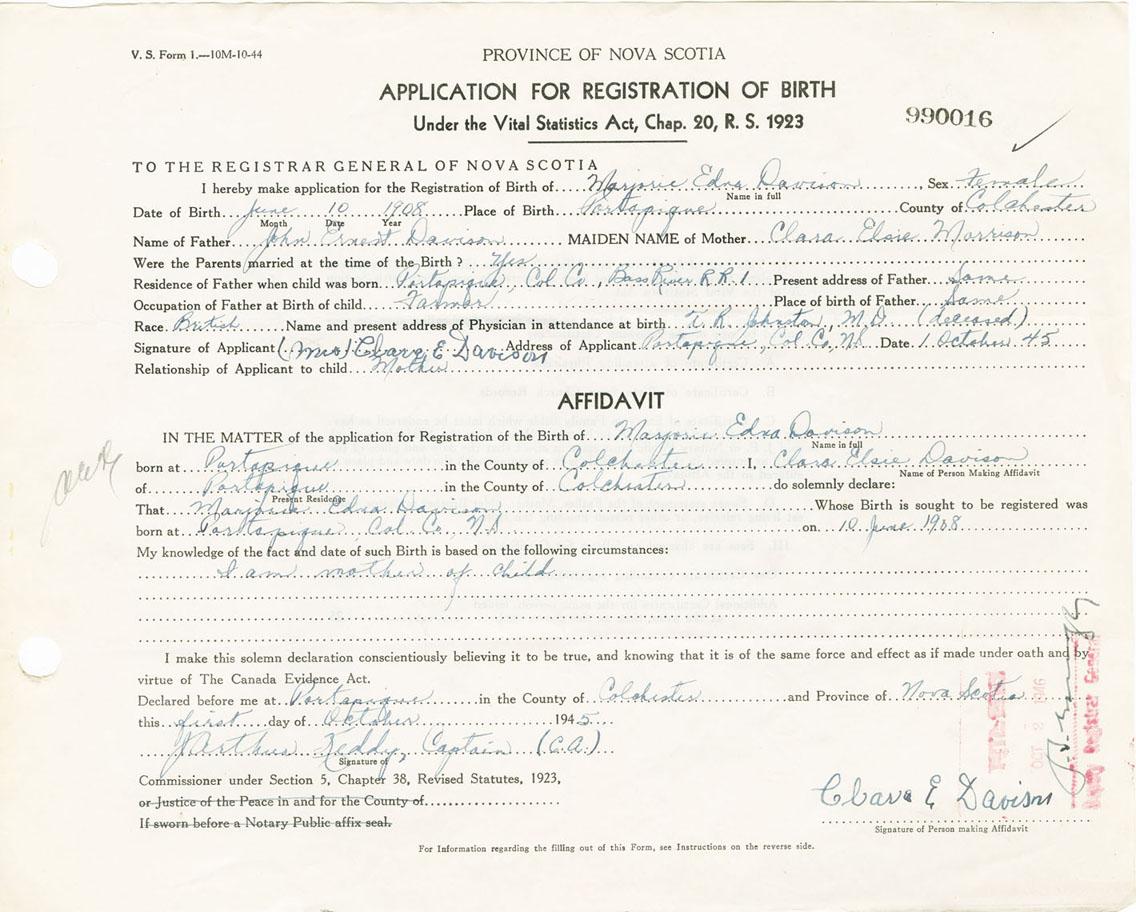 V. S. Form 1.—10M-10-44
PROVINCE OF NOVA SCOTIA
APPLICATION FOR REGISTRATION OF BIRTH
Under the Vital Statistics Act, Chap. 20, R. S. 1923
990016
TO THE REGISTRAR GENERAL OF NOVA SCOTIA
I hereby make application for the Registration of Birth of Marjorie Edna Davison, Sex Female
Name in full
Date of Birth June 10 1908 Place of Birth Portapique County of Colchester
Month Date Year
Name of Father John Ernest Davison MAIDEN NAME of Mother Clara Elsie Morrison
Were the Parents married at the time of the Birth? Yes
Residence of Father when child was born Portapique, Col. Co., Bass River R.R. 1 Present address of Father Same
Occupation of Father at Birth of child Farmer Place of birth of Father Same
Race British Name and present address of Physician in attendance at birth T. R. Johnston, M.D. (deceased)
Signature of Applicant (Mrs) Clara E Davison Address of Applicant Portapique, Col. Co, NS Date 1 October 45
Relationship of Applicant to child Mother
AFFIDAVIT
IN THE MATTER of the application for Registration of the Birth of Marjorie Edna Davison
Name in full
born at Portapique in the County of Colchester I, Clara Elsie Davison
Name of Person Making Affidavit
of Portapique in the County of Colchester do solemnly declare:
Present Residence
That Marjorie Edna Davison Whose Birth is sought to be registered was
born at Portapique Col. Co., N.S. on 10 June 1908
My knowledge of the fact and date of such Birth is based on the following circumstances:
I am mother of child
I make this solemn declaration conscientiously believing it to be true, and knowing that it is of the same force and effect as if made under oath and by
virtue of The Canada Evidence Act.
Declared before me at Portapique in the County of Colchester and Province of Nova Scotia
this first day of October 1945
Arthur Keddy, Captain (C.A.)
Signature of
Commissioner under Section 5, Chapter 38, Revised Statutes, 1923,
or Justice of the Peace in and for the County of
If sworn before a Notary Public affix seal.
Clara E Davison
Signature of Person making Affidavit
For Information regarding the filling out of this Form, see Instructions on the reverse side.
OCT 8
Deputy Registrar General